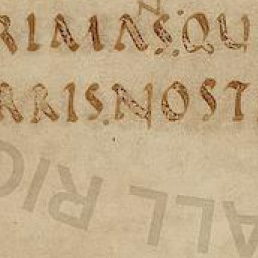 RIAIAS.QU
RRIS.NOST
ALL RIG